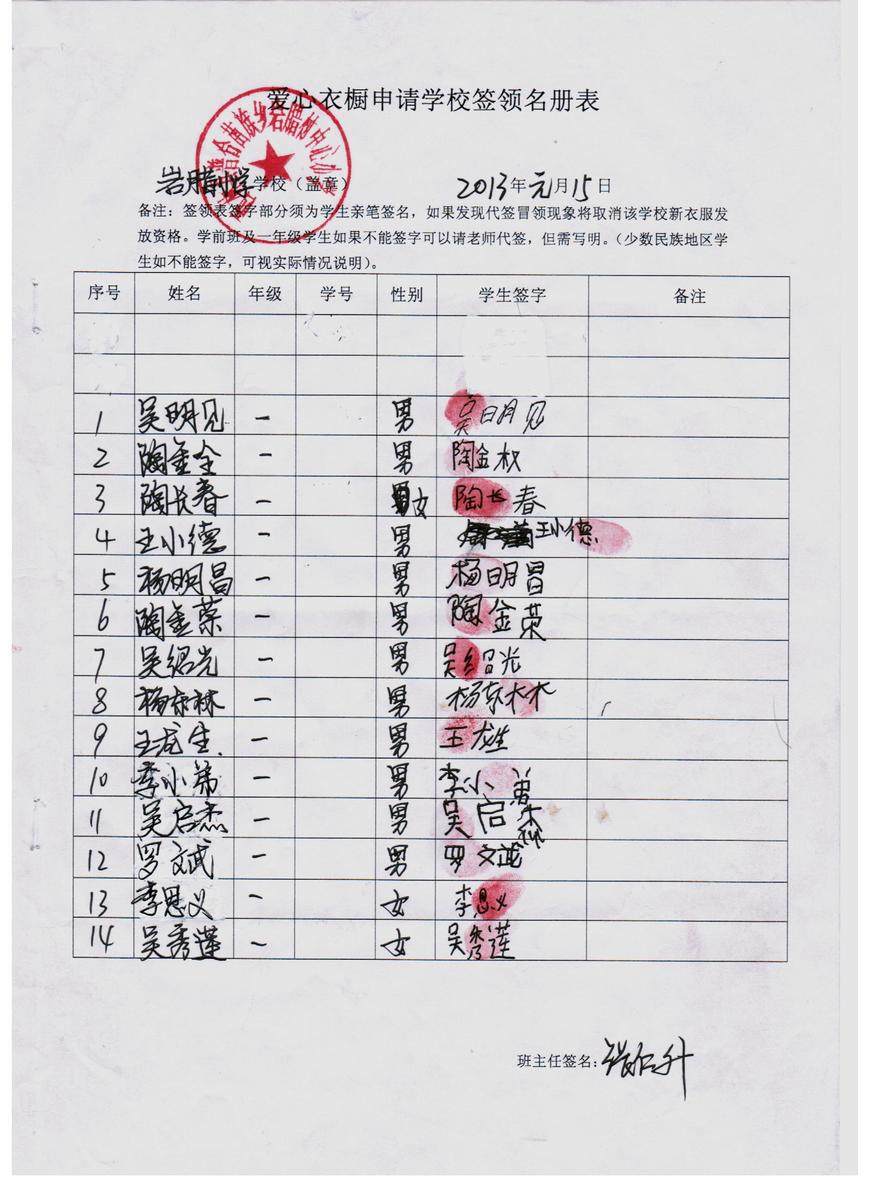 爱心衣橱申请学校签领名册表
苗族乡岩腊村中心小
岩腊小学学校（盖章） 2013年元月15日
备注：签领表签字部分须为学生亲笔签名，如果发现代签冒领现象将取消该学校新衣服发
放资格。学前班及一年级学生如果不能签字可以请老师代签，但需写明。（少数民族地区学
生如不能签字，可视实际情况说明）。
序号 姓名 年级 学号 性别 学生签字 备注
1 吴明见 一 男 吴明见
2 陶金全 一 男 陶金权
3 陶长春 一 女 陶长春
4 王小德 一 男 王小德
5 杨明昌 一 男 杨明昌
6 陶金荣 一 男 陶金荣
7 吴绍光 一 男 吴绍光
8 杨东林 一 男 杨东林
9 王龙生 一 男 王龙生
10 李小弟 一 男 李小弟
11 吴启杰 一 男 吴启杰
12 罗文斌 一 男 罗文斌
13 李思义 一 女 李思义
14 吴秀莲 一 女 吴秀莲
班主任签名：